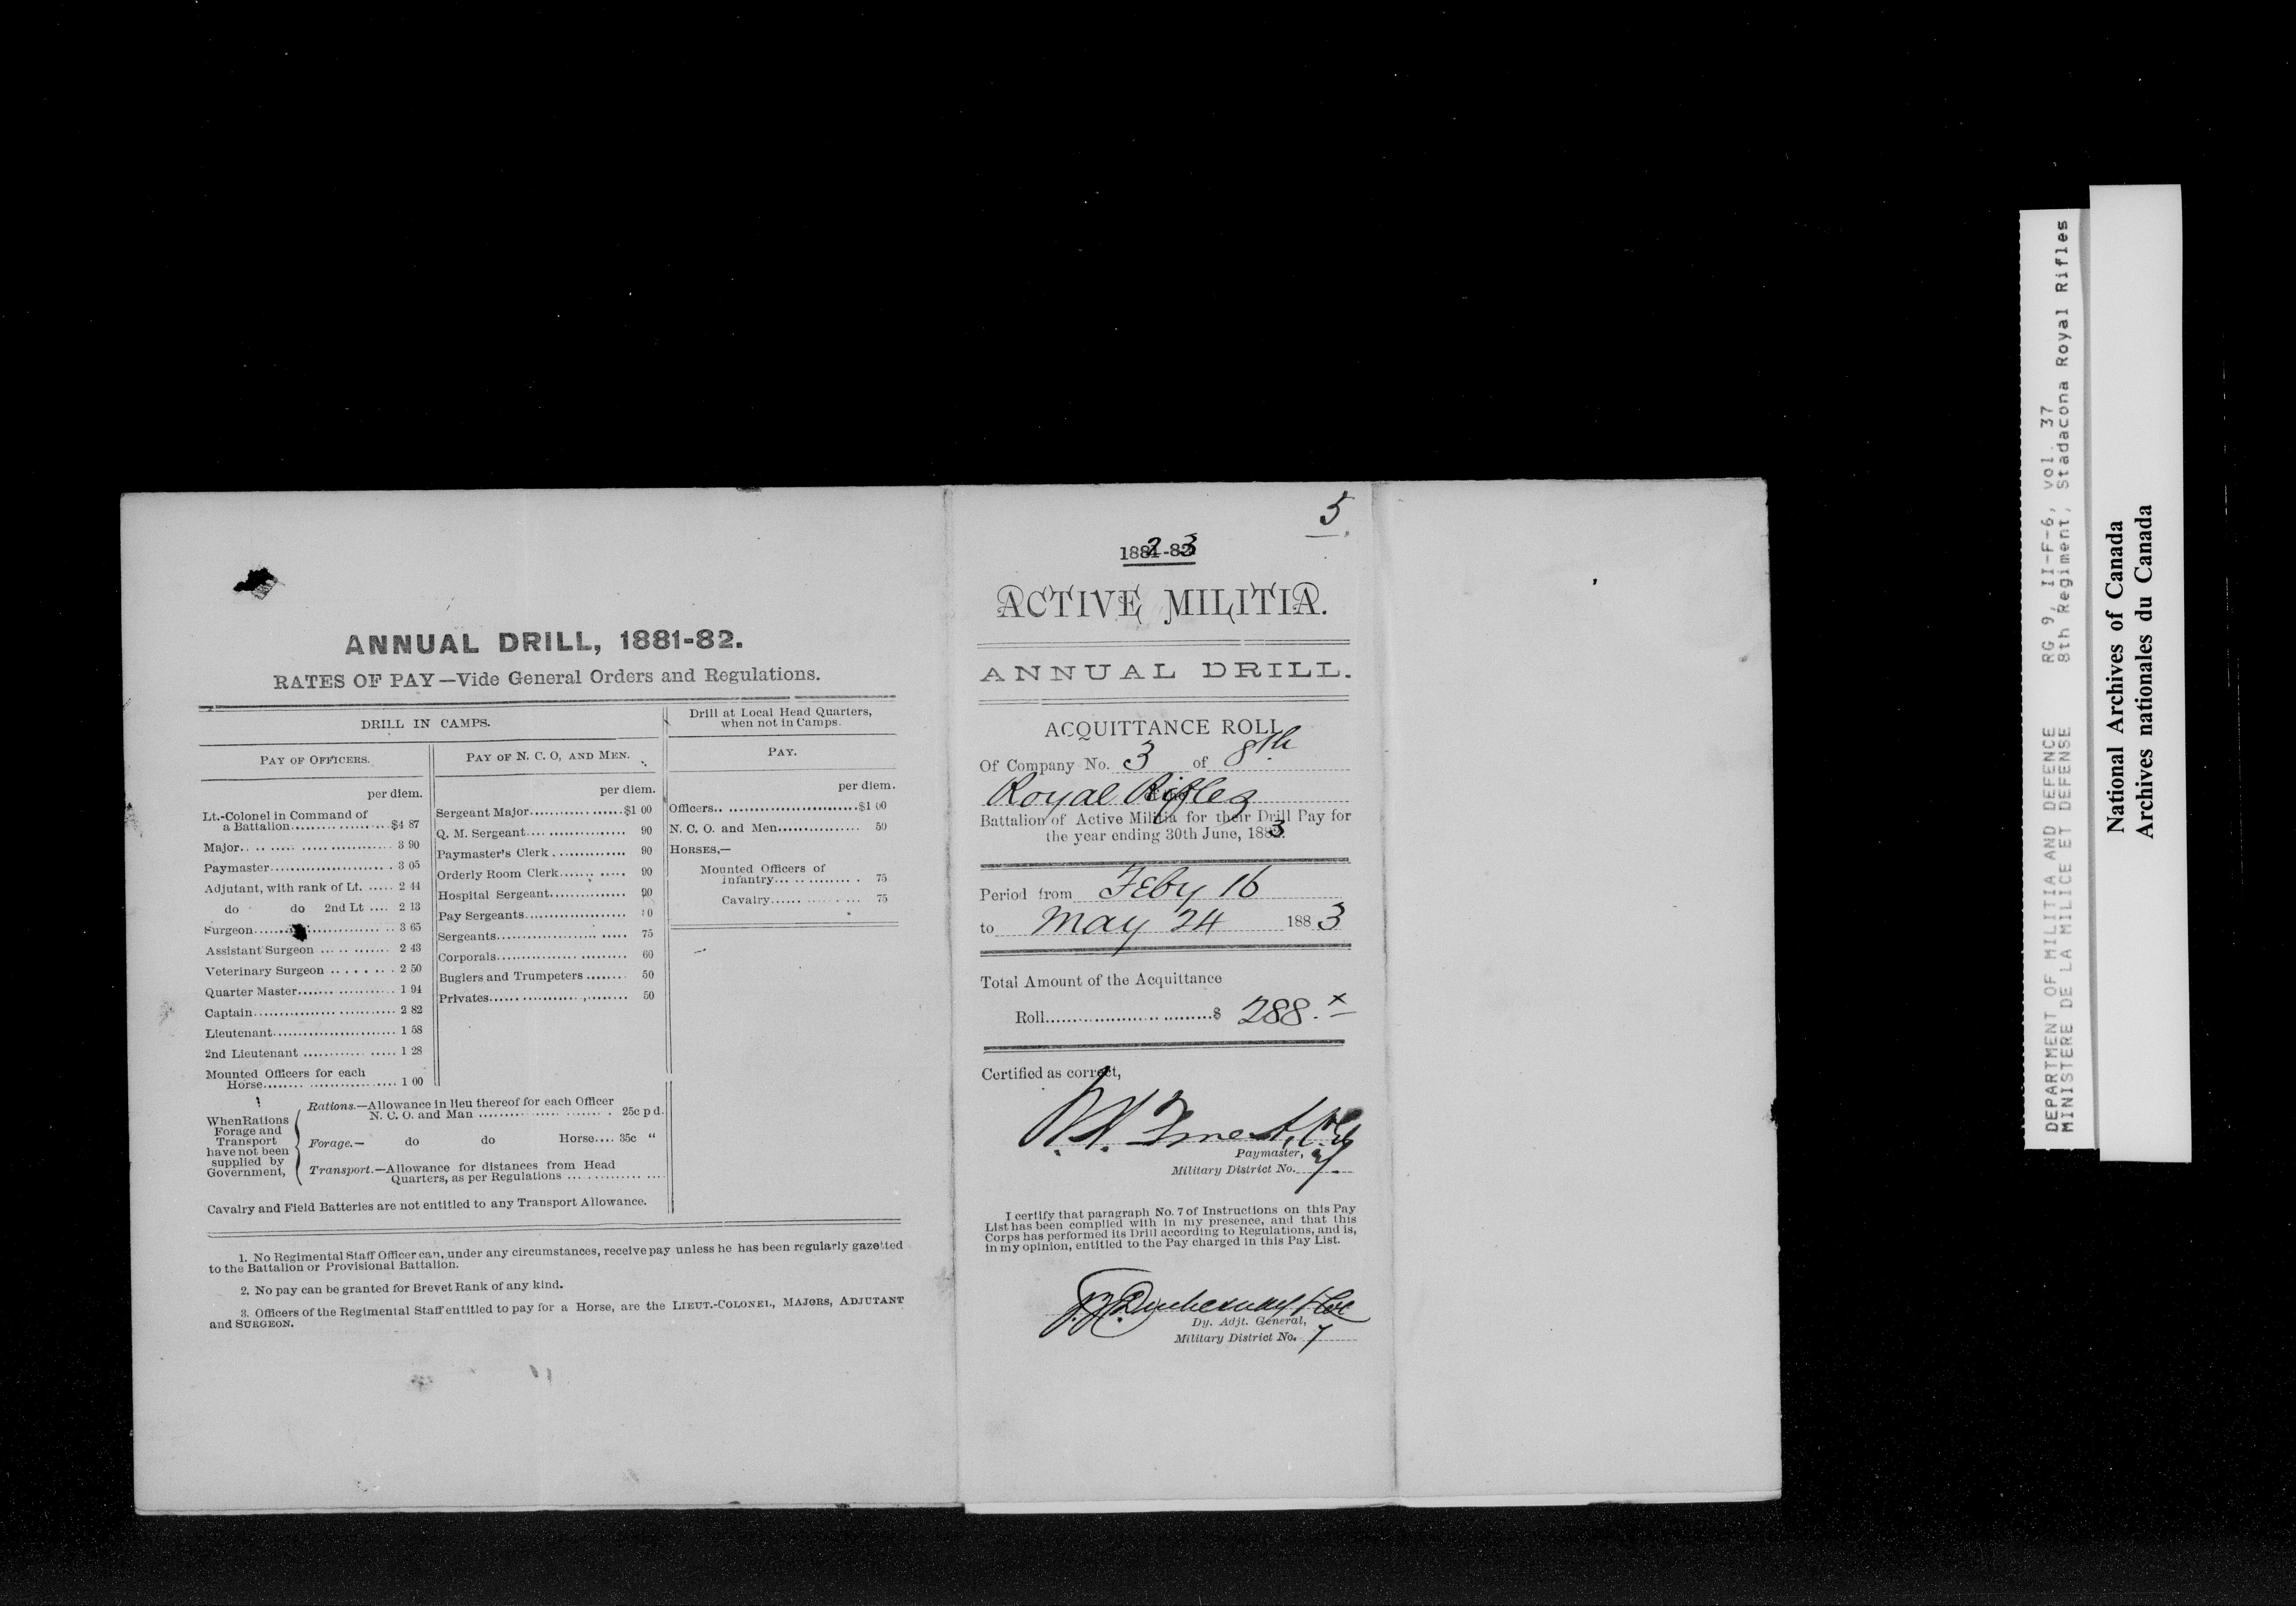 ANNUAL DRILL, 1881-82.
RATES OF PAY—Vide General Orders and Regulations.
DRILL IN CAMPS.
PAY OF OFFICERS.
per diem.
Lt.-Colonel in Command of
a Battalion..................$4 87
Major....................... 3 90
Paymaster....................... 3 05
Adjutant, with rank of Lt. ..... 2 44
do do 2nd Lt .... 2 13
Surgeon....................... 3 65
Assistant Surgeon ............ 2 43
Veterinary Surgeon ........ 2 50
Quarter Master.................. 1 94
Captain....................... 2 82
Lieutenant....................... 1 58
2nd Lieutenant ................. 1 28
Mounted Officers for each
Horse....................... 1 00
PAY OF N. C. O, AND MEN.
per diem.
Sergeant Major..................$1 00
Q. M. Sergeant.................. 90
Paymaster's Clerk .............. 90
Orderly Room Clerk............ 90
Hospital Sergeant............... 90
Pay Sergeants....................
Sergeants....................... 75
Corporals....................... 60
Buglers and Trumpeters ........ 50
Privates....................... 50
Drill at Local Head Quarters,
when not in Camps.
PAY.
per diem.
Officers.........................$1 00
N. C. O. and Men................ 50
HORSES,—
Mounted Officers of
Infantry................ 75
Cavalry................ 75
When Rations
Forage and
Transport
have not been
supplied by
Government,
Rations.—Allowance in lieu thereof for each Officer
N. C. O. and Man ....................... 25c p d.
Forage.— do do Horse.... 35c “
Transport.—Allowance for distances from Head
Quarters, as per Regulations ................
Cavalry and Field Batteries are not entitled to any Transport Allowance.
1. No Regimental Staff Officer can, under any circumstances, receive pay unless he has been regularly gazetted
to the Battalion or Provisional Battalion.
2. No pay can be granted for Brevet Rank of any kind.
3. Officers of the Regimental Staff entitled to pay for a Horse, are the LIEUT.-COLONEL, MAJORS, ADJUTANT
and SURGEON.
5
1882-83
ACTIVE MILITIA.
ANNUAL DRILL.
ACQUITTANCE ROLL
Of Company No. 3 of 8th
Royal Rifles
Battalion of Active Militia for their Drill Pay for
the year ending 30th June, 1883.
Period from Feby 16
to May 24 1883
Total Amount of the Acquittance
Roll..................................$ 288.x
Certified as correct,
Paymaster,
Military District No. 7
I certify that paragraph No. 7 of Instructions on this Pay
List has been complied with in my presence, and that this
Corps has performed its Drill according to Regulations, and is,
in my opinion, entitled to the Pay charged in this Pay List.
Dy. Adjt. General,
Military District No. 7
DEPARTMENT OF MILITIA AND DEFENCE RG 9, II-F-6, vol. 37
MINISTERE DE LA MILICE ET DEFENSE 8th Regiment, Stadacona Royal Rifles
National Archives of Canada
Archives nationales du Canada